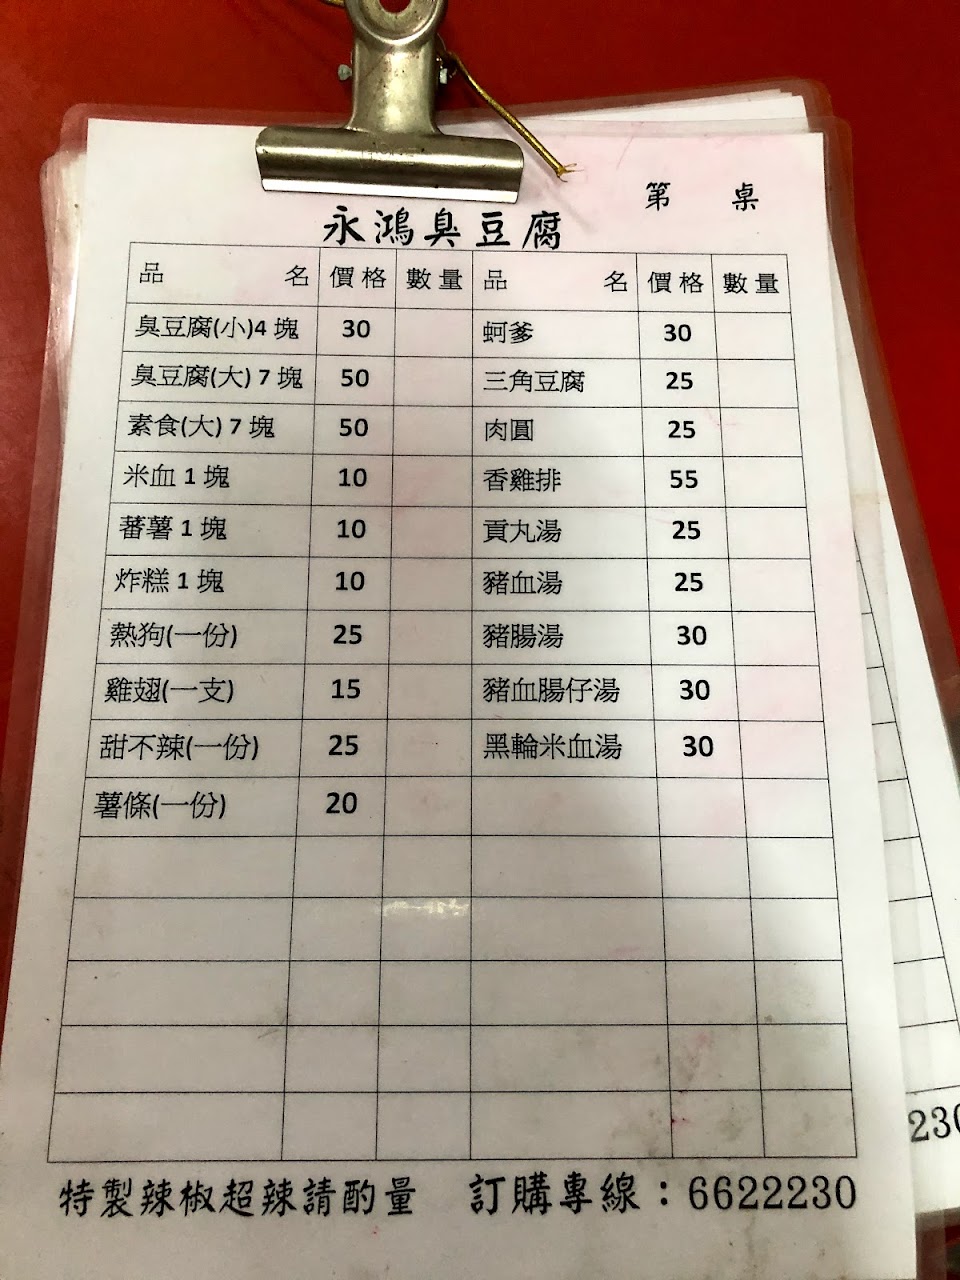 第 桌
永鴻臭豆腐
品名 價格 數量 品名 價格 數量
臭豆腐(小)4 塊 30 蚵爹 30
臭豆腐(大) 7 塊 50 三角豆腐 25
素食(大) 7 塊 50 肉圓 25
米血 1 塊 10 香雞排 55
蕃薯 1 塊 10 貢丸湯 25
炸糕 1 塊 10 豬血湯 25
熱狗(一份) 25 豬腸湯 30
雞翅(一支) 15 豬血腸仔湯 30
甜不辣(一份) 25 黑輪米血湯 30
薯條(一份) 20
特製辣椒超辣請酌量 訂購專線：6622230
230